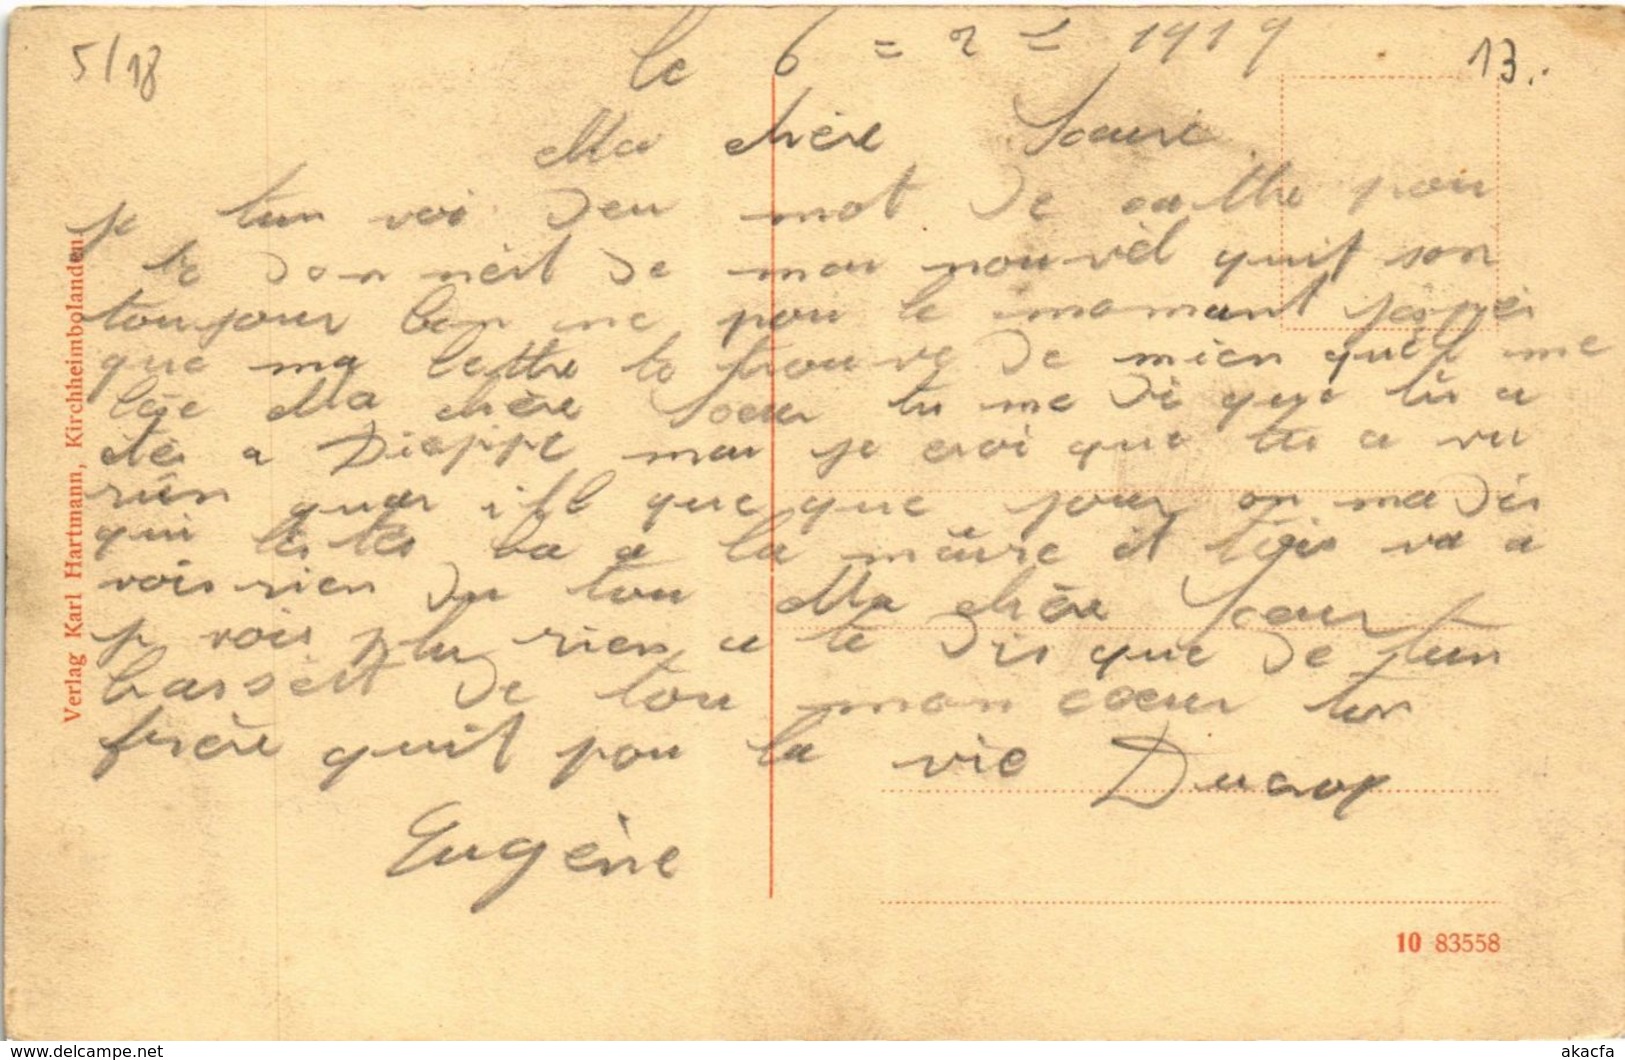 5/18
le 6 = 2 = 1919
13..
Ma chère Soeure
je tun voi deu mot de cattre pou
te donneit de mau nouvèl quit son
toujour bon ne pou le momant jespèi
que ma lettre te trouve de mien quèl me
lése Ma chère Soeur tu me di que tu a
étés a Dieppe mai je croi que tu a vu
rien quar ill que que jour on ma dis
qui les tes ba a la mêure et tois va a
vois rien du tou Ma chère Soeur
je vois plu rien a te dis que de tun
barsèit de tou mon coeur ton
frère quit pou la vie Ducrop
Eugène
Verlag Karl Hartmann, Kirchheimbolanden.
10 83558
delcampe.net
akacfa